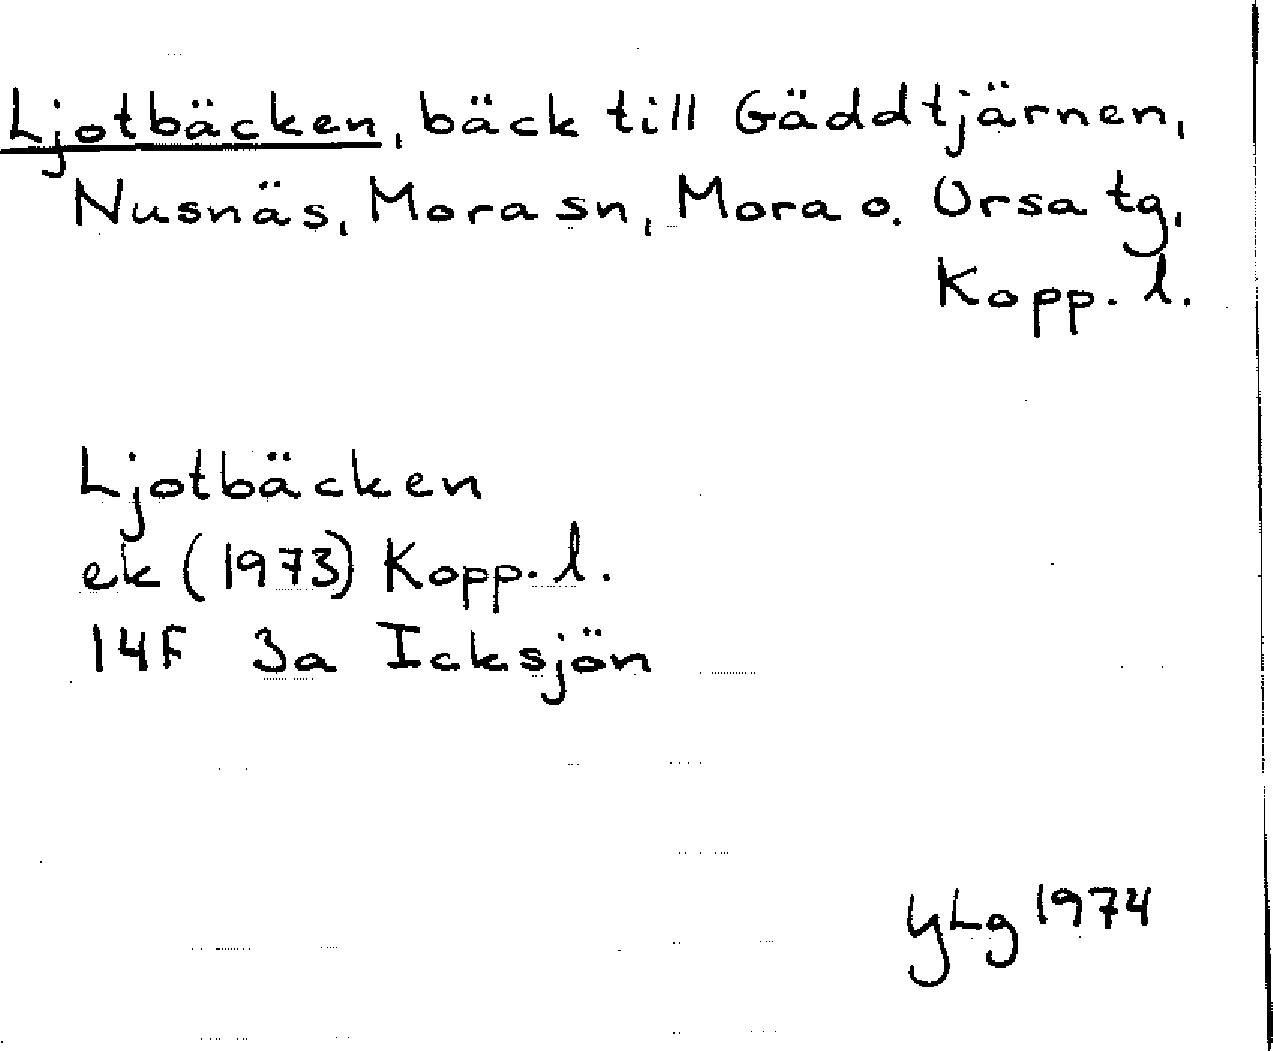 Ljotbäcken, bäck till Gäddtjärnen,
Nusnäs, Mora sn, Mora o. Orsa tg,
Kopp. l.
Ljotbäcken
ek (1973) Kopp. l.
14F 3a Icksjön
YLg 1974